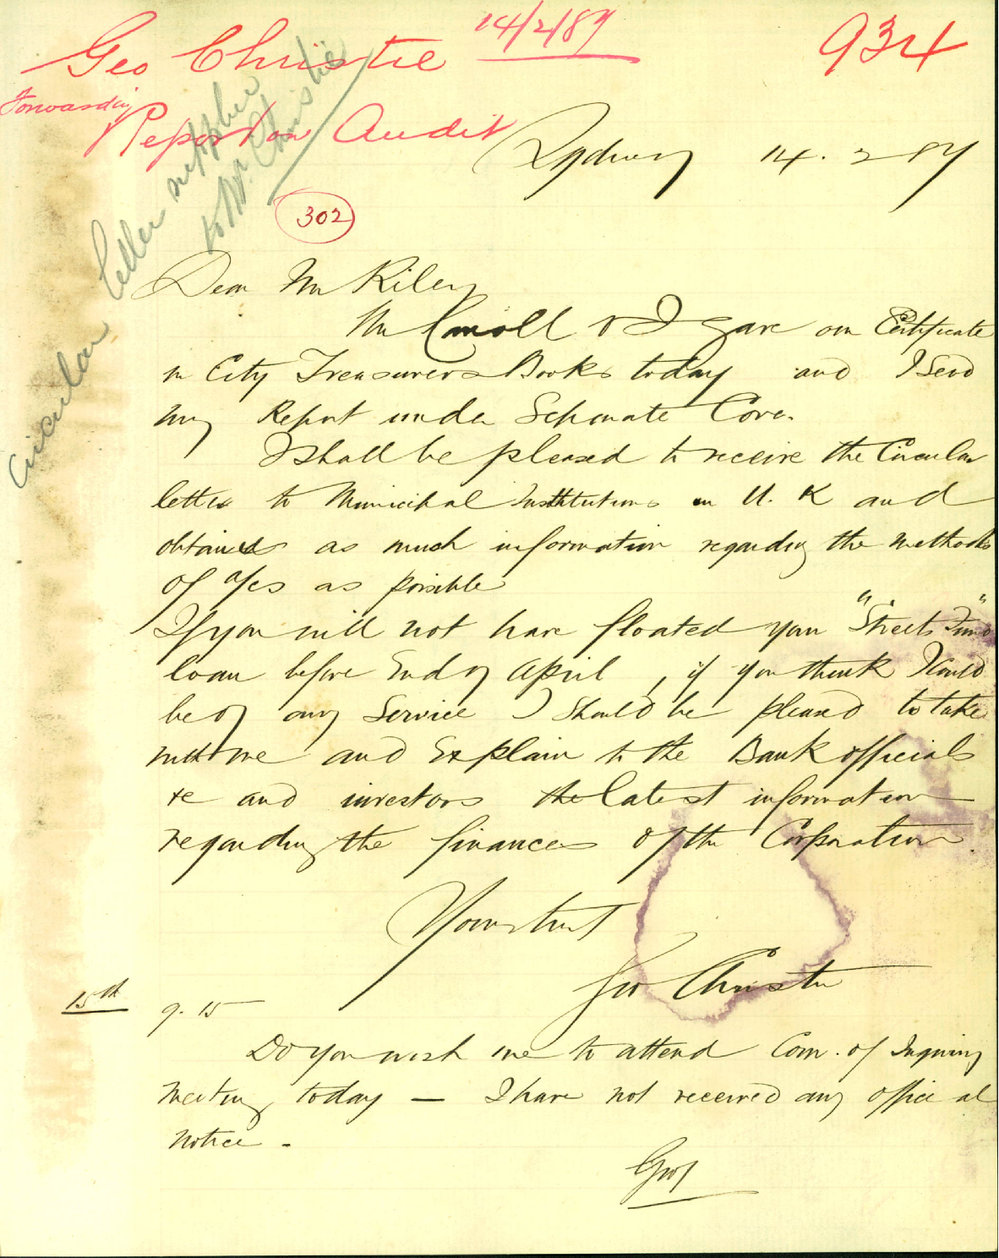 Geo Christie 14/2/89 934
Forwarding
Report on Audit
Circular letter supplied
to Mr Christie
Sydney 14. 2 89
302
Dear Mr Riley
Mr Carroll & I gave our Certificate
in City Treasurers Books today and I Send
my Report under Separate Cover.
I shall be pleased to receive the Circular
letter to Municipal Institutions in U. K and
obtain as much information regarding the methods
of as possible
If you will not have floated your "Streets Fund"
loan before End of April, if you think I Could
be of any Service I Should be pleased to take
with me and Explain to the Bank officials
&c and investors the latest information
regarding the finances of the Corporation
Yours truly
Geo Christie
15th 9.15
Do you wish me to attend Com. of Inquiry
meeting today — I have not received any official
notice -